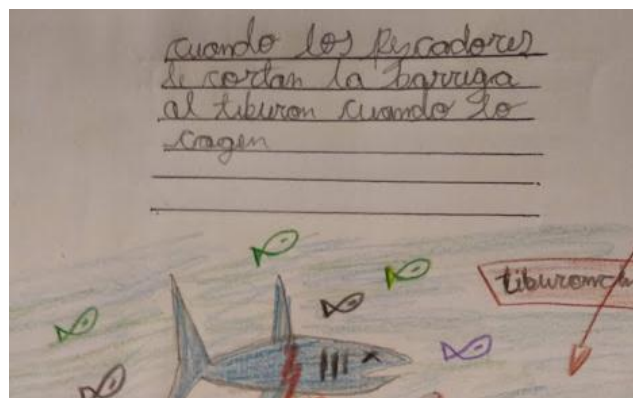 cuando los Pescadores
le cortan la barriga
al tiburon cuando lo
cogen